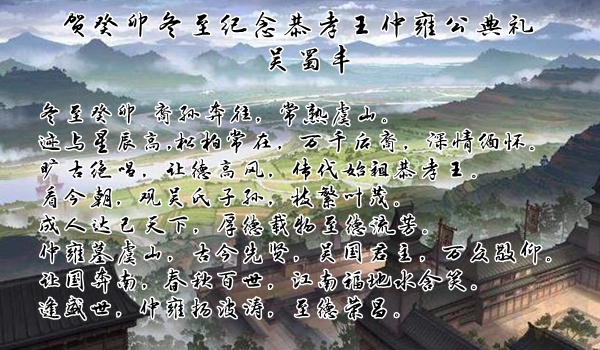 贺癸卯冬至纪念恭孝王仲雍公典礼
吴蜀丰
冬至癸卯 裔孙奔往，常熟虞山。
迹与星辰高，松柏常在，万千后裔，深情缅怀。
旷古绝唱，让德高风，传代始祖恭孝王。
看今朝，观吴氏子孙，枝繁叶茂。
成人达己天下，厚德载物至德流芳。
仲雍墓虞山，古今先贤，吴国君主，万众敬仰。
让国奔南，春秋百世，江南福地水含笑。
逢盛世，仲雍扬波涛，至德荣昌。